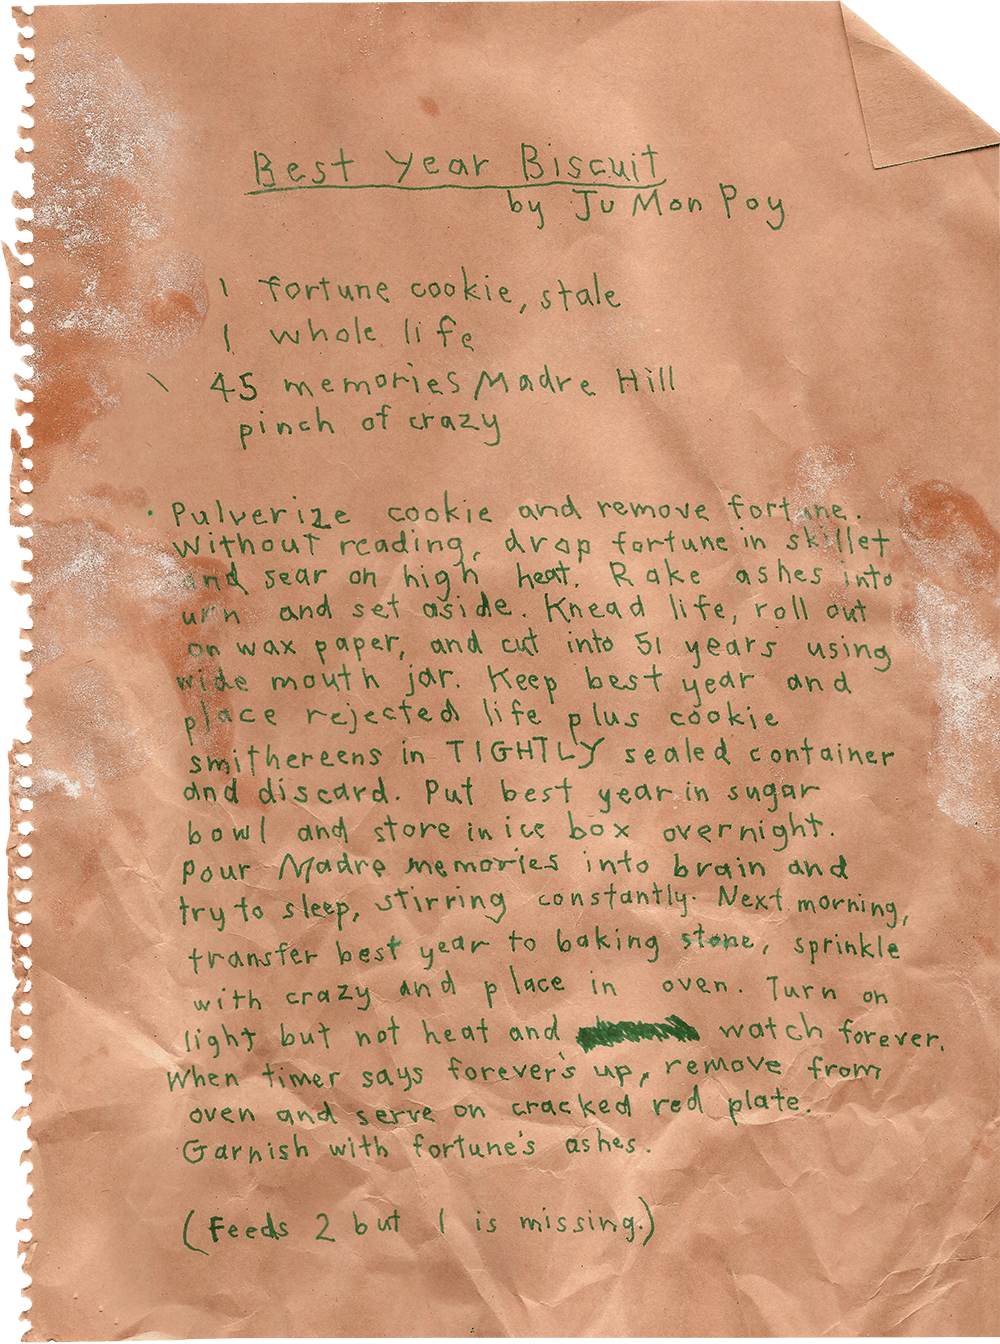 Best Year Biscuit
by Ju Mon Poy
1 fortune cookie, stale
1 whole life
45 memories Madre Hill
pinch of crazy
Pulverize cookie and remove fortune.
Without reading, drop fortune in skillet
and sear on high heat. Rake ashes into
urn and set aside. Knead life, roll out
on wax paper, and cut into 51 years using
wide mouth jar. Keep best year and
place rejected life plus cookie
smithereens in TIGHTLY sealed container
and discard. Put best year in sugar
bowl and store in ice box overnight.
Pour Madre memories into brain and
try to sleep, stirring constantly. Next morning,
transfer best year to baking stone, sprinkle
with crazy and place in oven. Turn on
light but not heat and watch forever.
When timer says forever's up, remove from
oven and serve on cracked red plate.
Garnish with fortune's ashes.
(Feeds 2 but 1 is missing.)